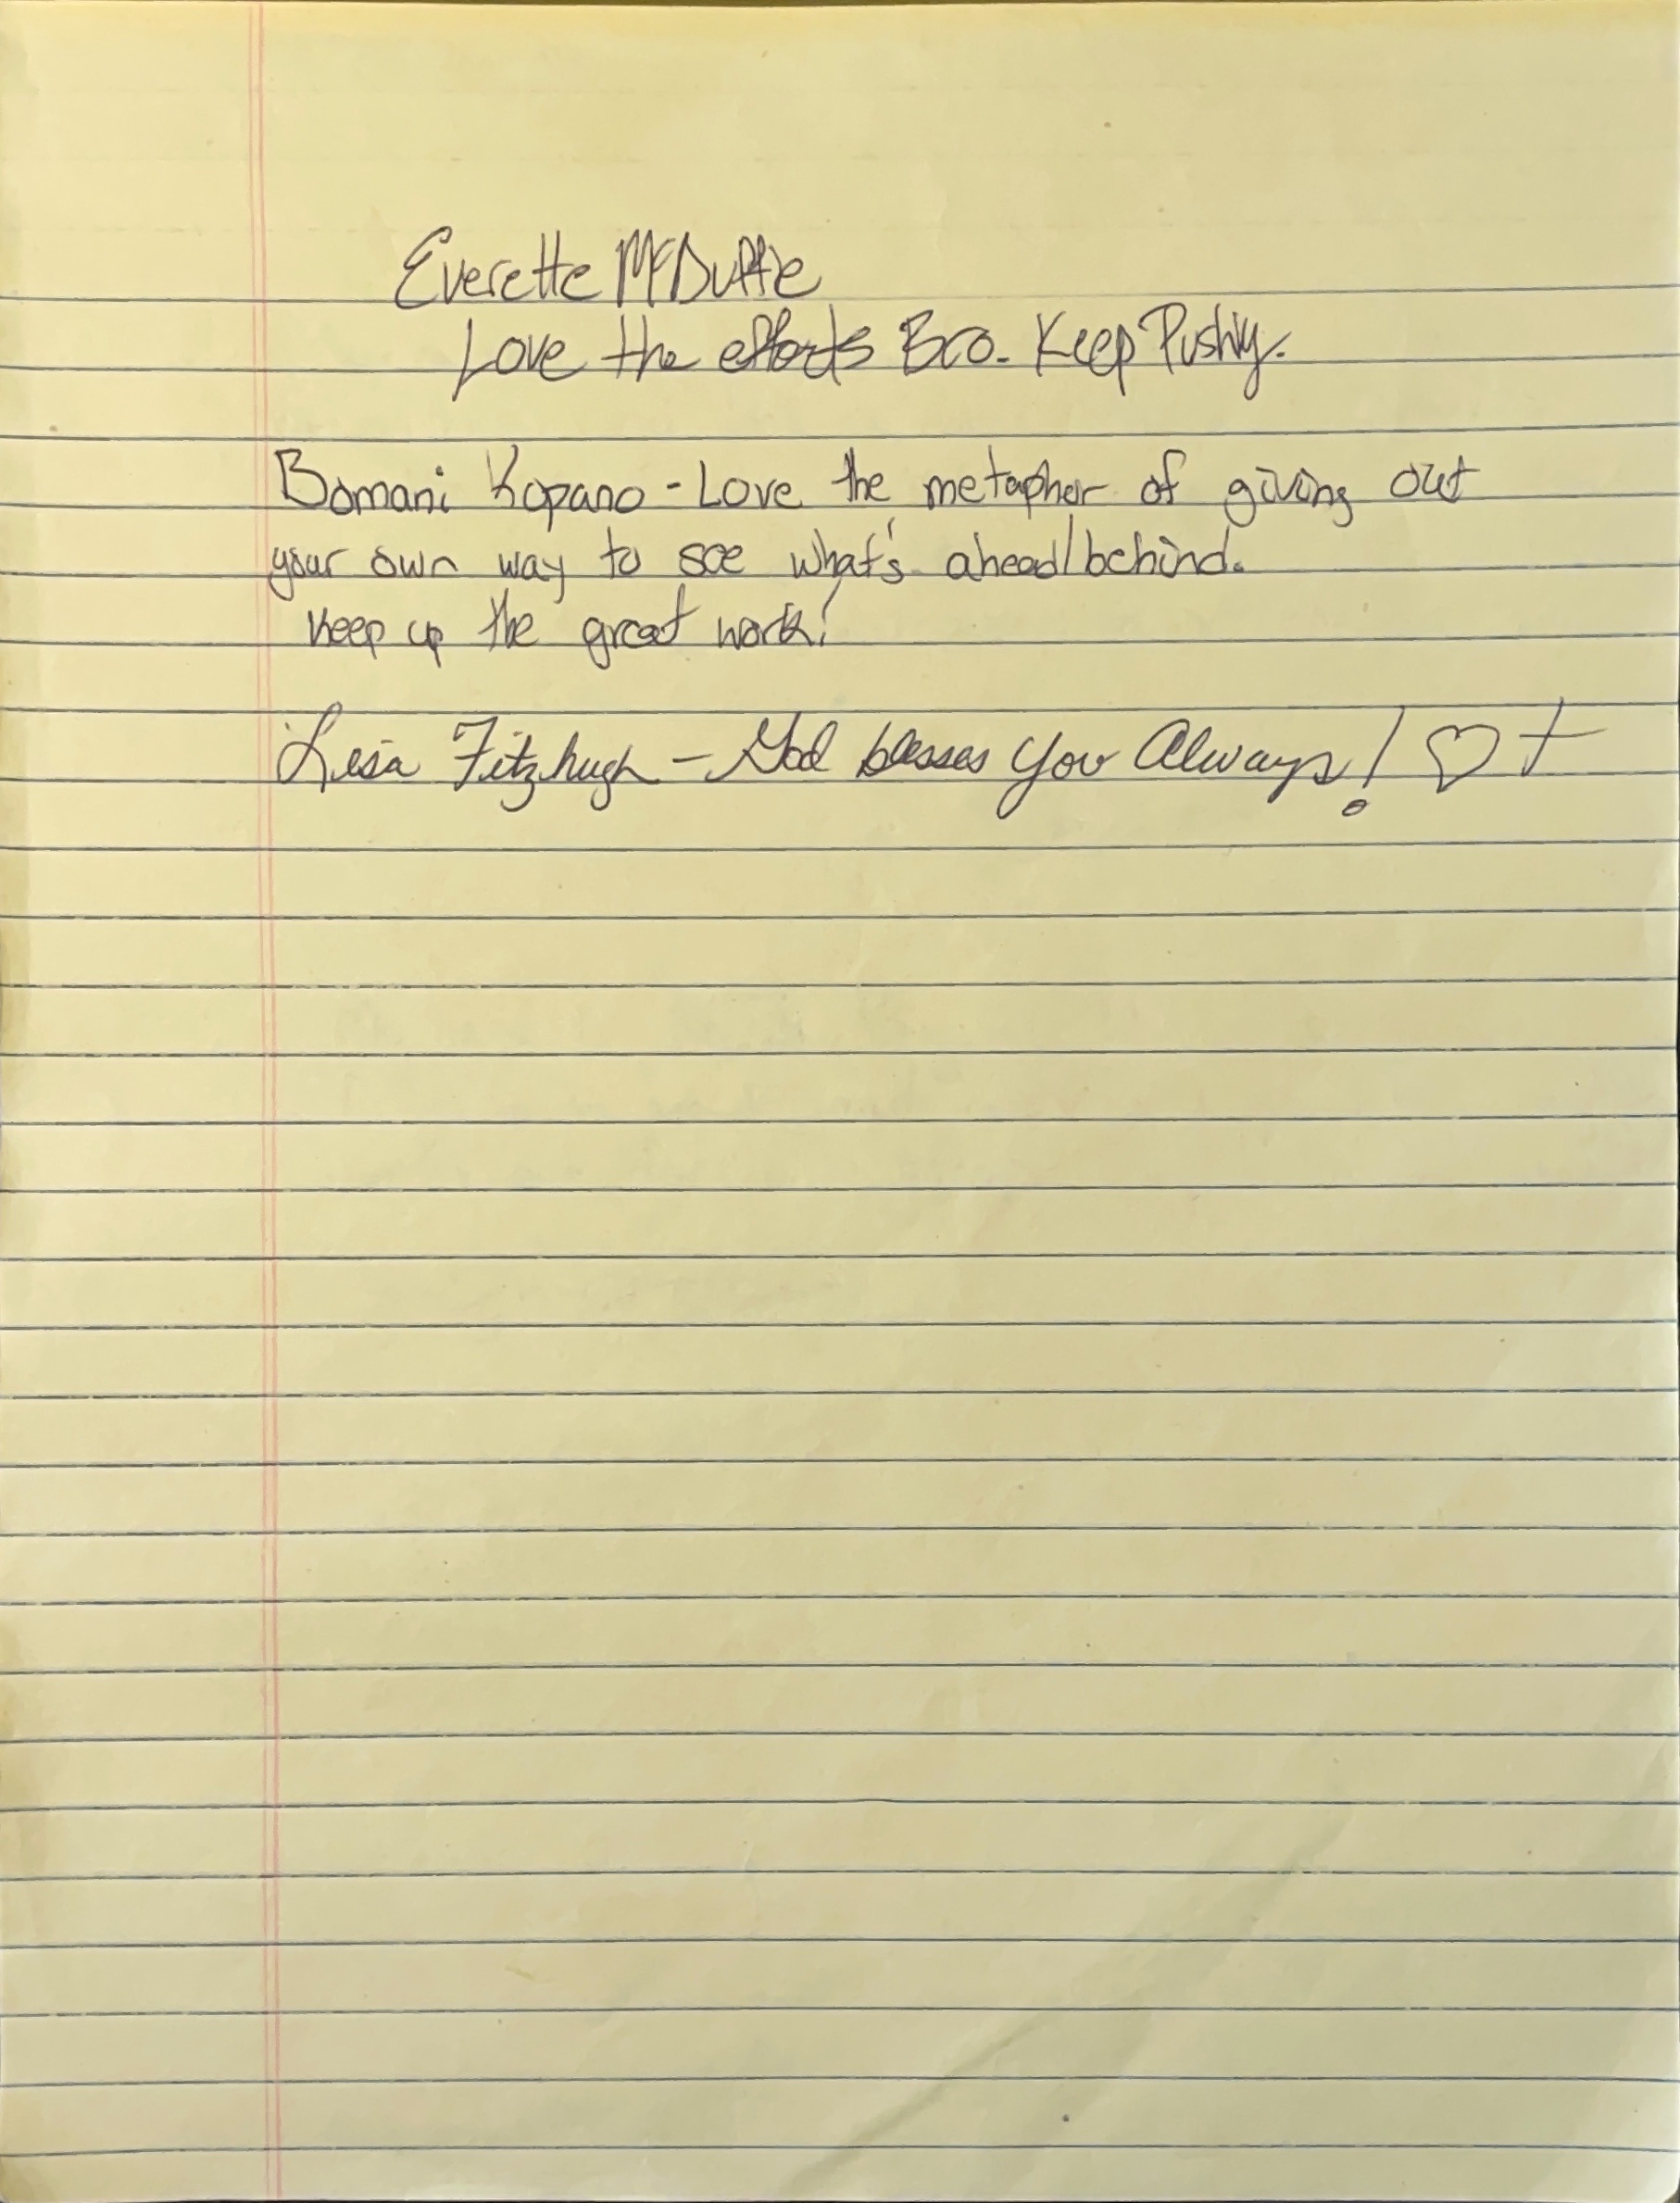 Everette McDuffie
Love the efforts Bro. Keep Pushing.
Bomani Kopano - Love the metaphor of giving out
your own way to see what's ahead/behind.
Keep up the great work!
Lisa Fitzhugh - God blesses you Always! ♡ †